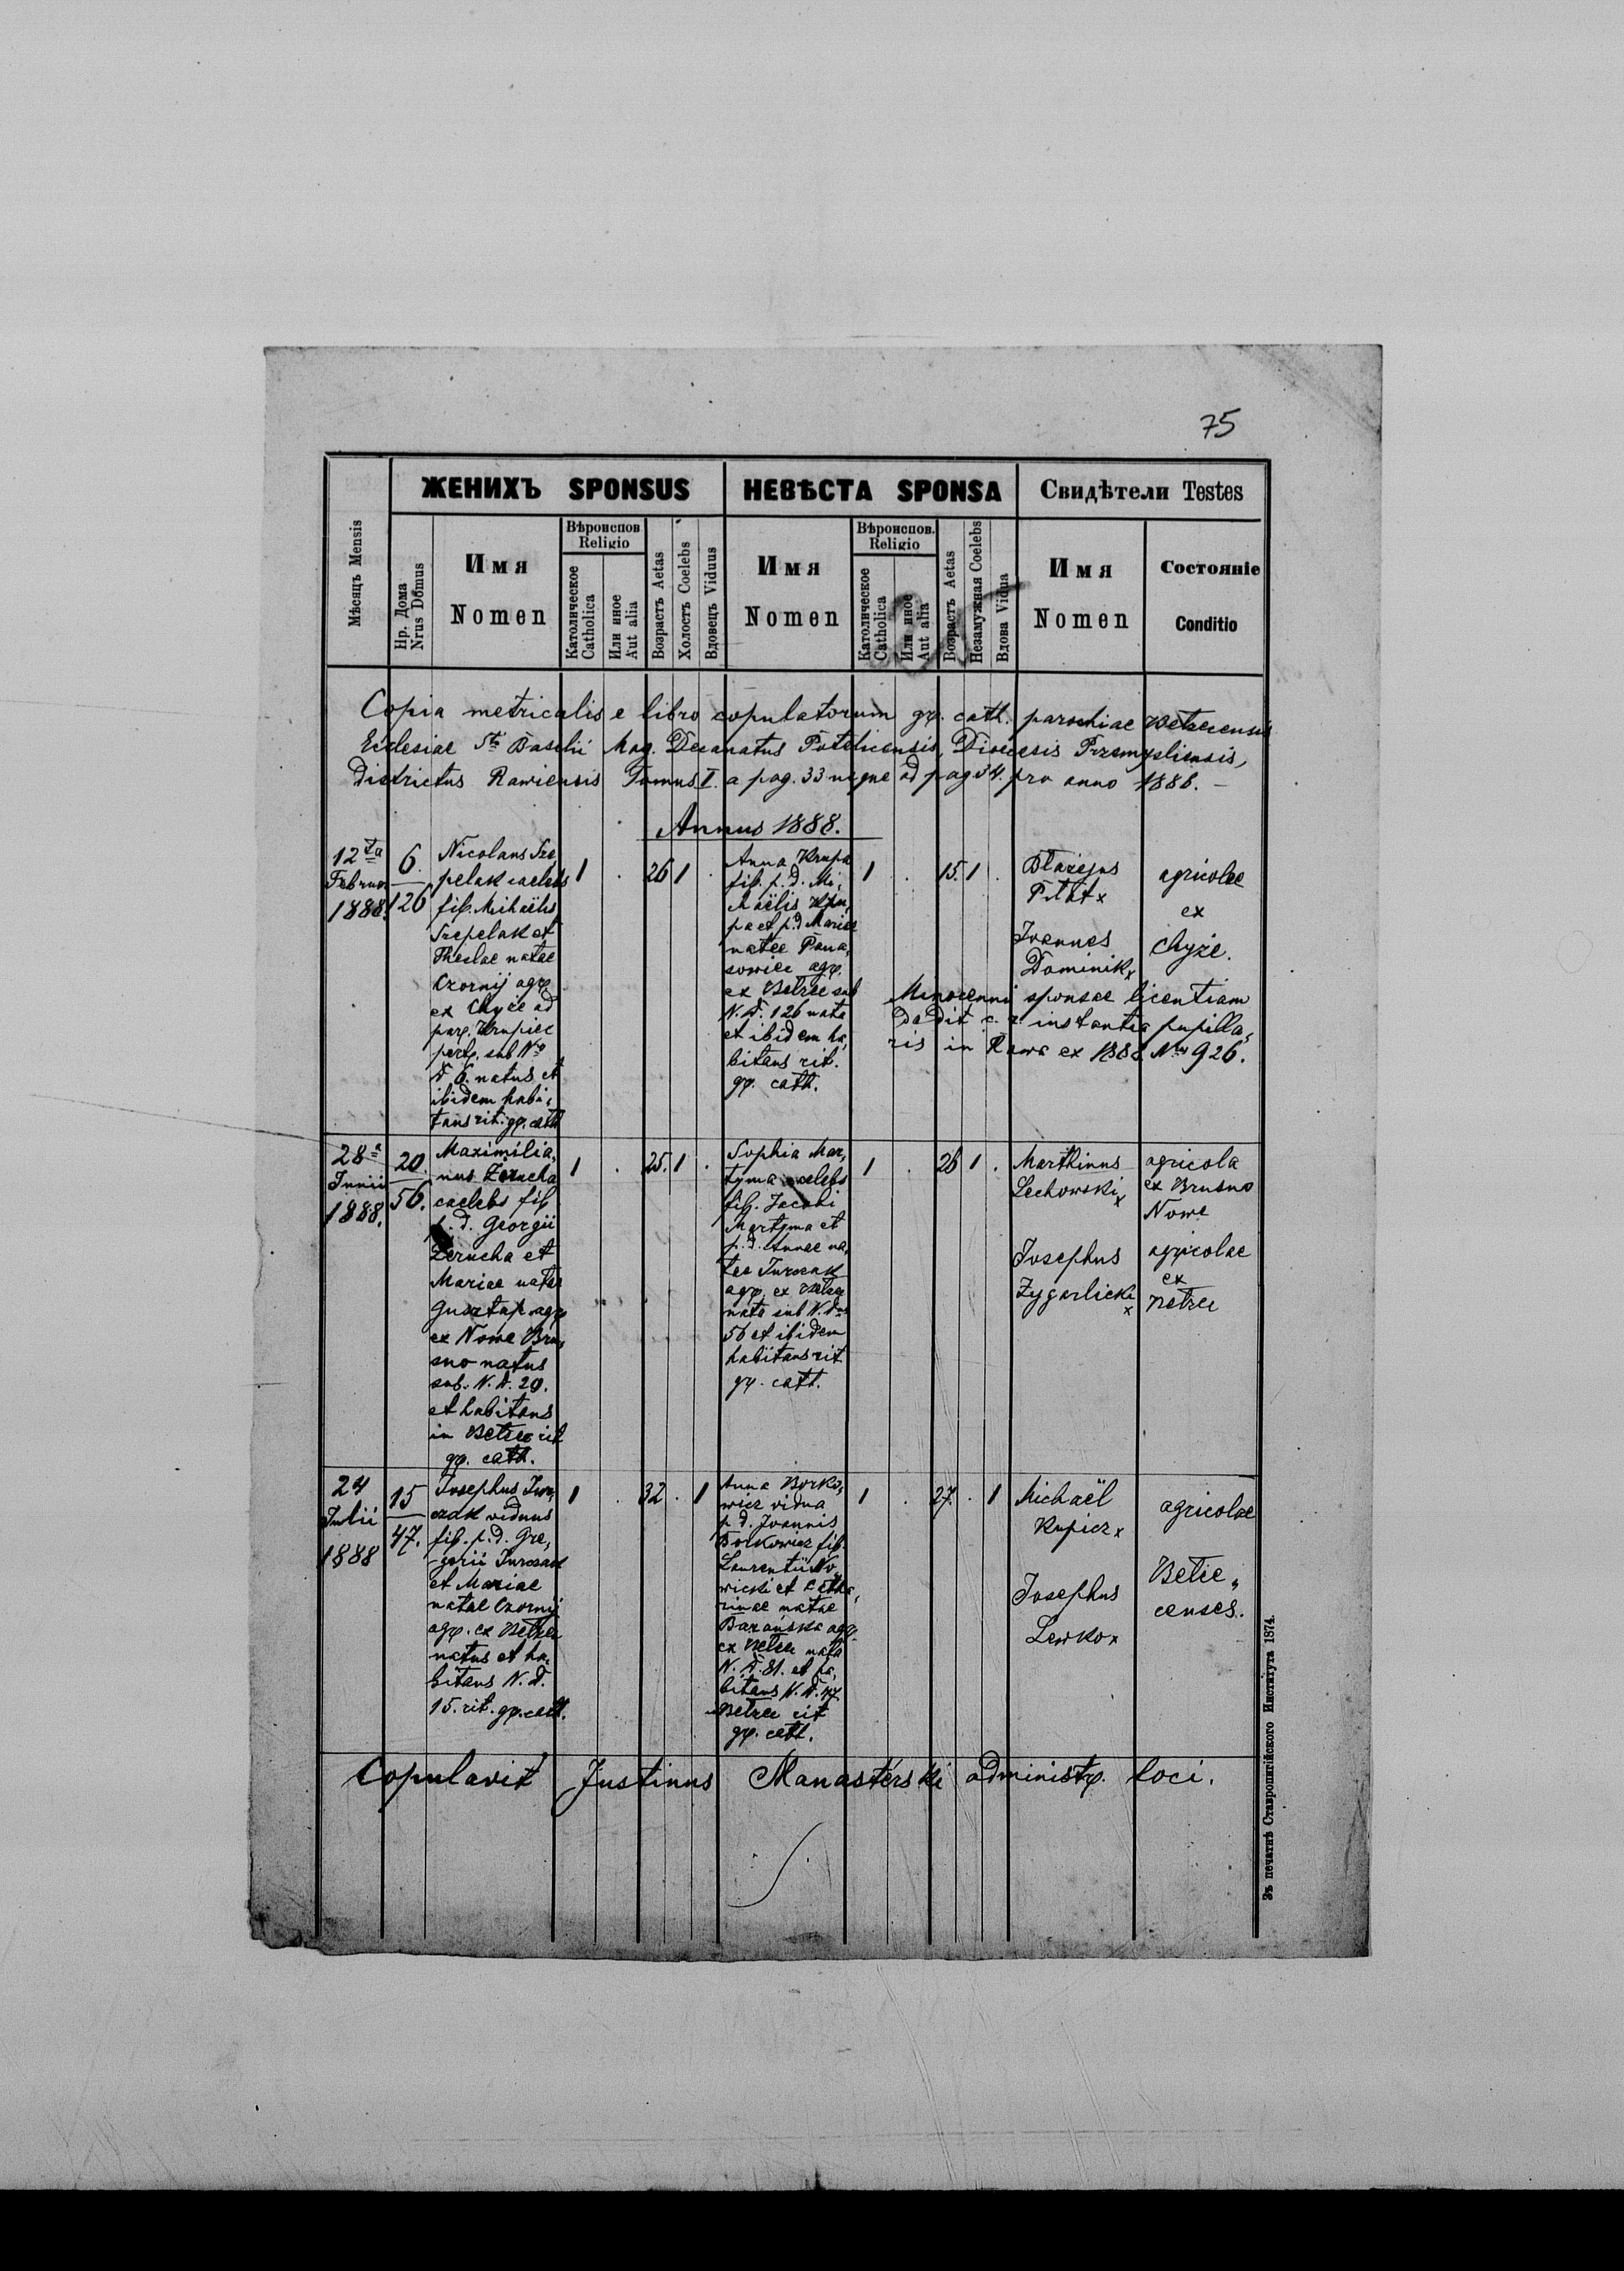 75
ЖЕНИХЪ SPONSUS
НЕВѢСТА SPONSA
Свидѣтели Testes
Мѣсяцъ Mensis
Нр. Дома
Nrus Domus
Имя
Nomen
Вѣроиспов.
Religio
Католическое
Catholica
Или иное
Aut alia
Возрастъ Aetas
Холостъ Coelebs
Вдовецъ Viduus
Имя
Nomen
Вѣроиспов.
Religio
Католическое
Catholica
Или иное
Aut alia
Возрастъ Aetas
Незамужная Coelebs
Вдова Vidua
Имя
Nomen
Состояніе
Conditio
Copia metricalis e libro copulatorum gr. cath. parochiae Betzecensis
Ecclesiae Sti Basilii Mag. Decanatus Potelicensis, Dioecesis Przemysliensis,
Districtus Rawiensis Tomus I. a pag. 33 usque ad pag 34. pro anno 1888. –
Annus 1888.
12ta
Februar
1888.
6.
126
Nicolaus Sre,
pelak caelebs
fil. Michaëlis
Srepelak et
Theclae natae
Czornij agr.
ex Chyże ad
par. Krupiec
pert. sub No
d 6. natus et
ibidem habi,
tans rit. gr. cath
1 . 26 1 .
Anna Krupa
fil. p. d. Mi,
chaëlis Kru,
pa et p. d Mariae
natae Pana,
sowicz agr.
ex Betzec sub
N. d. 126 nata
et ibidem ha,
bitans rit.
gr. cath.
1 . 15. 1 .
Błażejus
Pitat x
Joannes
Dominik x
agricolae
ex
Chyże.
Minorenni sponsae licentiam
dedit c. r. instantia pupilla,
ris in Rawa ex 1888 Nro 926.
28a
Junii
1888.
20
56.
Maximilia,
nus Zerucha
caelebs fil
p. d. Georgii
Zerucha et
Mariae natae
Gusztap agr
ex Nowe Bru,
sno natus
sub. N. d. 20.
et habitans
in Betzec rit
gr. cath.
1 . 25. 1 .
Sophia Mar,
tyma caelebs
fil. Jacobi
Martyma et
p. d. Annae na,
tae Jurczak
agr. ex Betzec
nata sub N. d
56 et ibidem
habitans rit
gr. cath.
1 . 26 1 .
Marthinus
Lechowski x
agricola
ex Brusno
Nowe
Josephus
Zygarlicki
x
agricolae
ex
Betzec
24
Julii
1888
15
47.
Josephus Jur,
czak viduus
fil. p. d. Gre,
gorii Jurczak
et Mariae
natae Czornij
agr. ex Betzec
natus et ha,
bitans N. d.
15. rit. gr. cath.
1 . 32 . 1
Anna Borko,
wicz vidua
p. d. Joannis
Borkowicz fil.
Laurentii No,
wicki et Catha,
rinae natae
Barańska agr.
ex Betzec nata
N. d. 81. et ha,
bitans N. d. 47.
Betzec rit
gr. cath.
1 . 27. . 1
Michaël
Kupicz x
agricolae
Josephus
Lewko x
Betze,,
censes.
Copulavit Justinus Manasterski administr. loci.
Зъ печатнѣ Ставропигійского Института 1874.